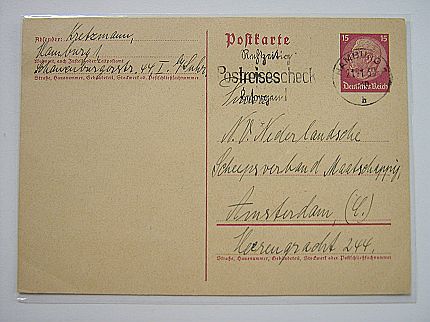 Absender: Kretzmann,
Hamburg 1
Wohnort, auch Zustell- oder Leitpostamt
Schauenburgerstr. 44 I.
Straße, Hausnummer, Gebäudeteil, Stockwerk od. Postschließfachnummer
Postkarte
Rechtzeitig
Postreisescheck
besorgen!
15 15
Deutsches Reich
HAMBURG
b
Firma
N.V. Nederlandsche
Scheepsverband Maatschappij
Amsterdam, (C.)
Heerengracht 244.
Straße, Hausnummer, Gebäudeteil, Stockwerk oder Postschließfachnummer